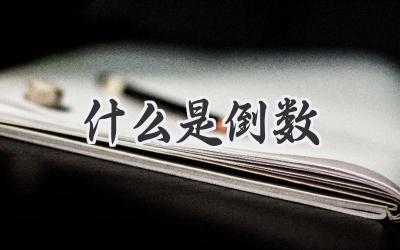 什么是倒数